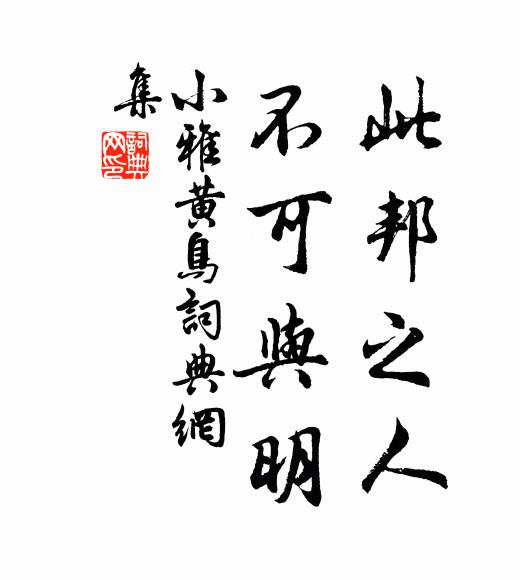 此邦之人
不可與明
小雅黄鳥詞典網
集
詞典網印